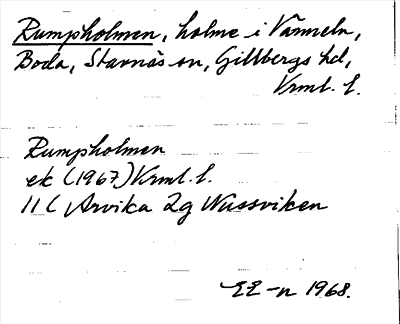 Rumpholmen, holme i Värmeln,
Boda, Stavnäs sn, Gillbergs hd,
Vrml. l.
Rumpholmen
ek (1967) Vrml. l.
11 C Arvika 2g Nussviken
EE-n 1968.